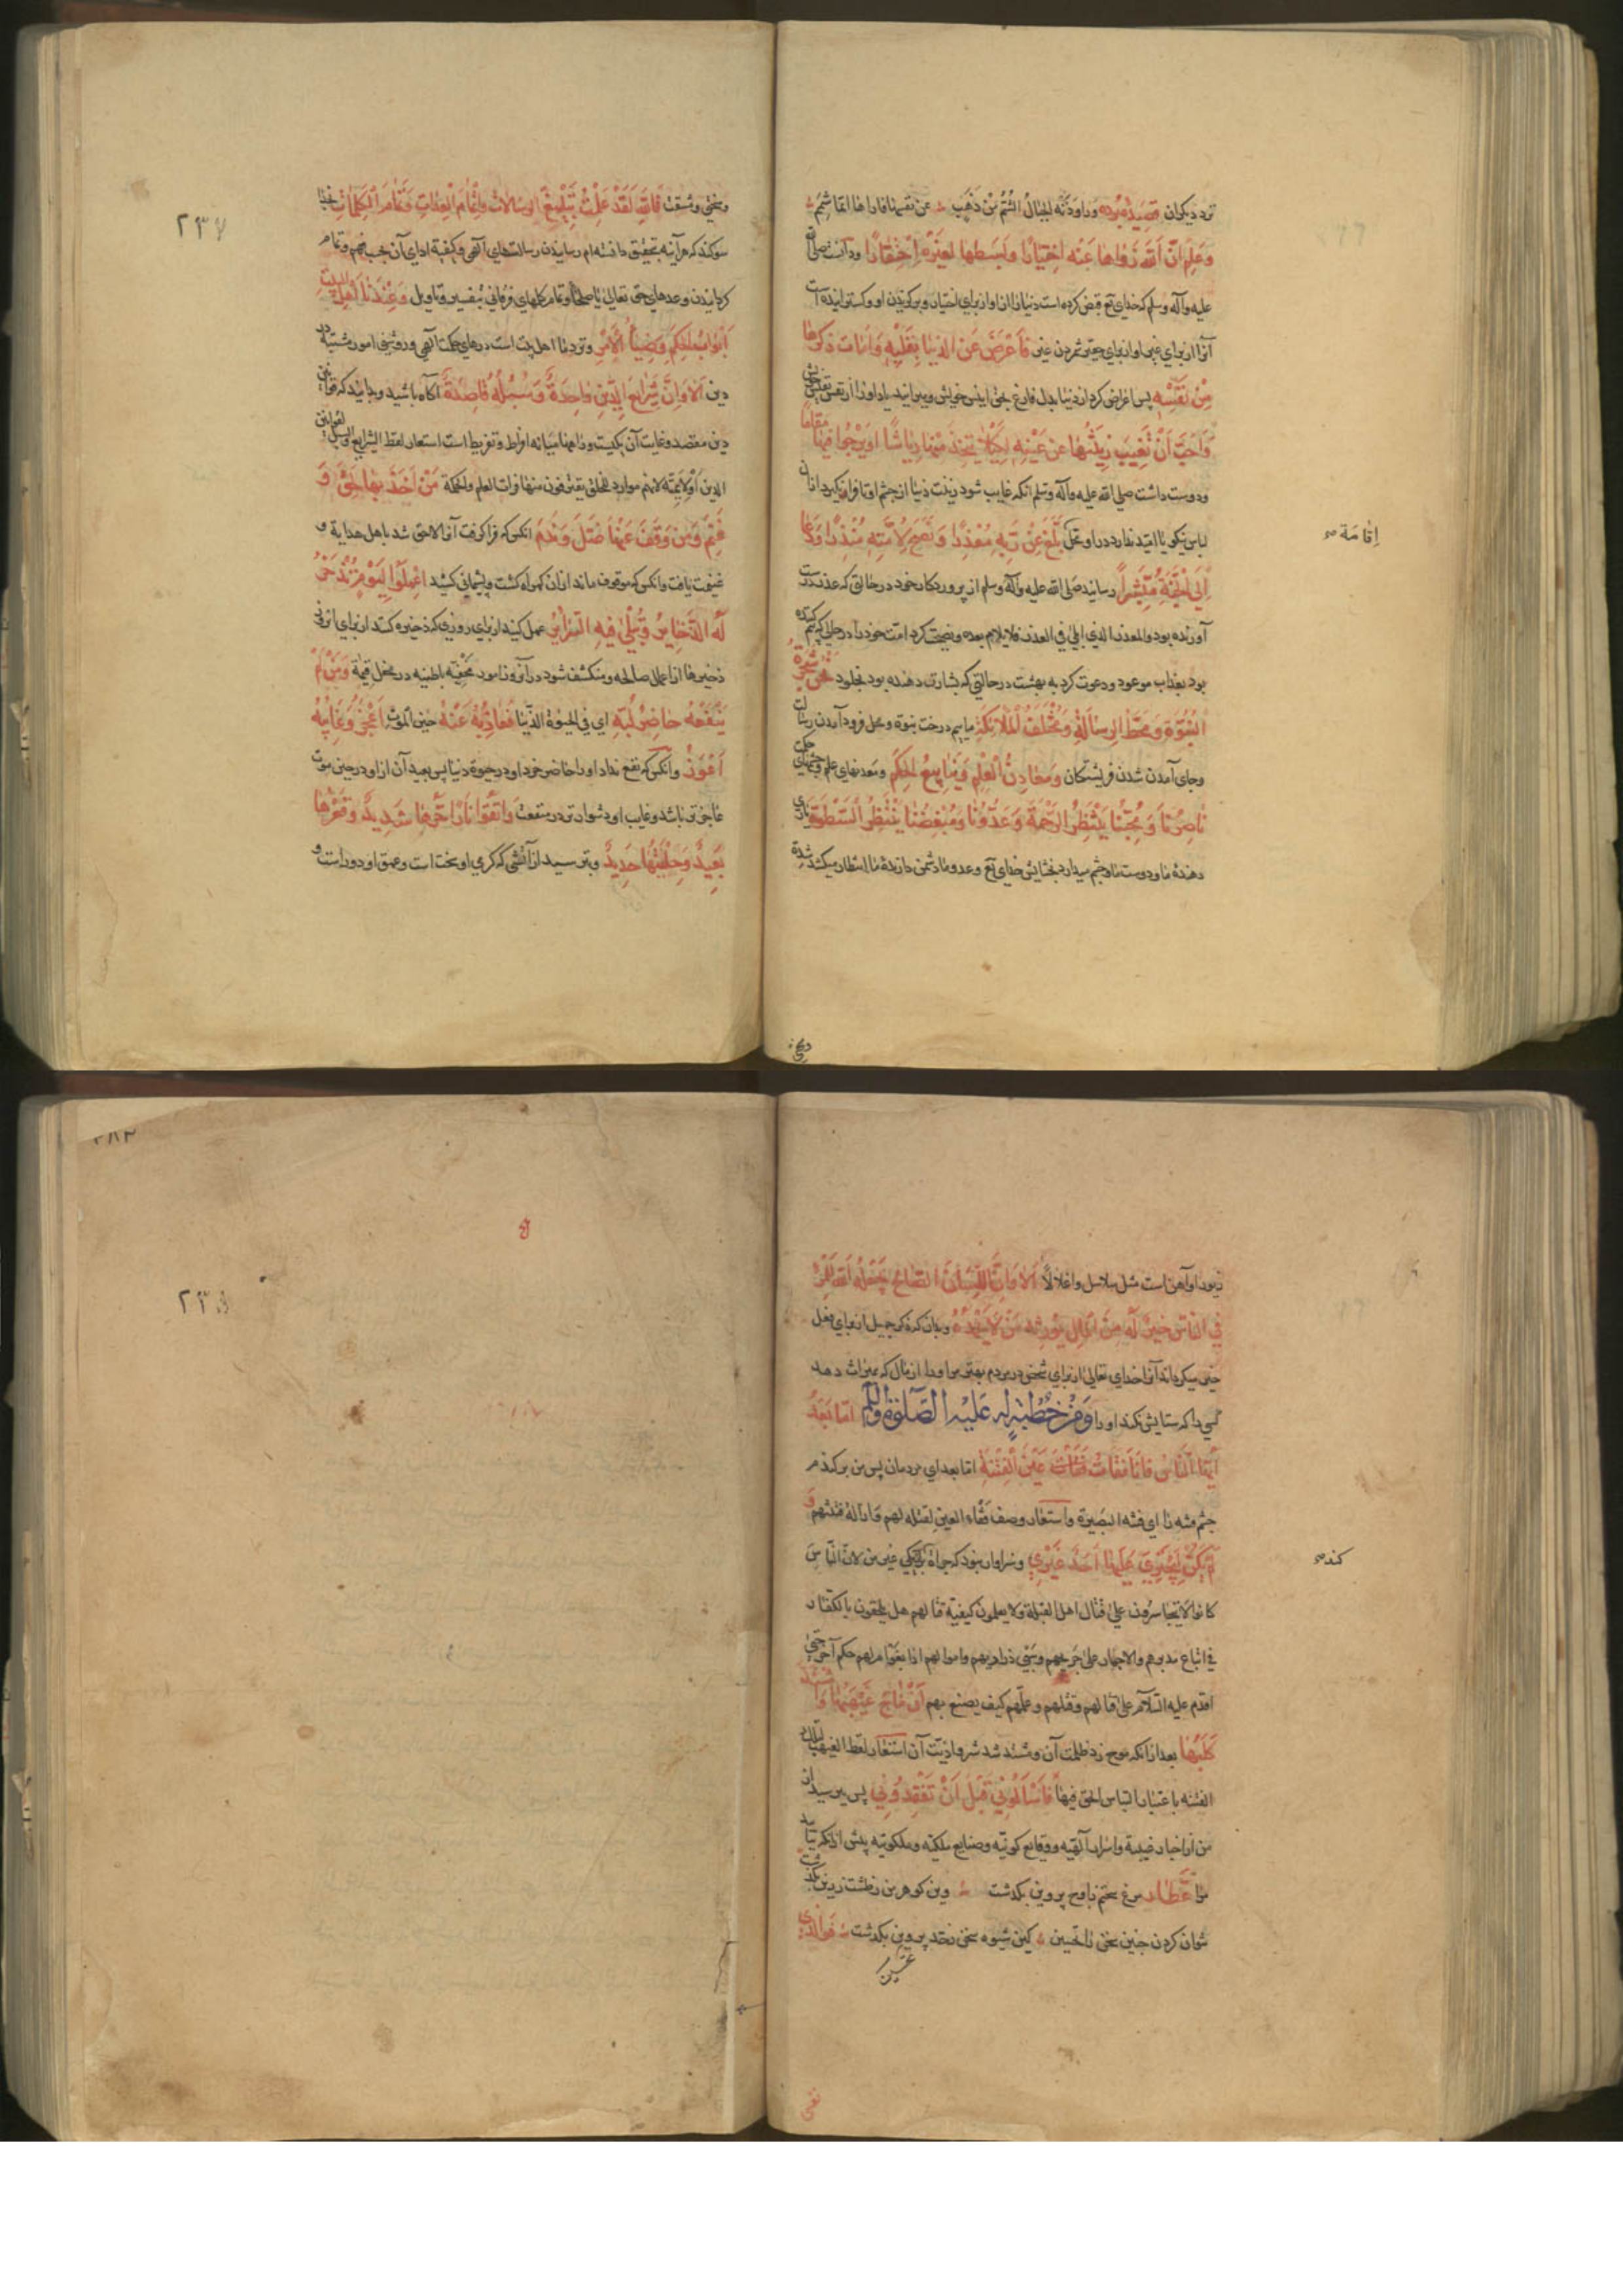 وَعَلِمَ اَنَّ اللّهَ زَوَاها عَنْهُ اخْتِيَارًا وَبَسَطَها لِغَيْرِهِ احْتِقَارًا ودانست صلی الله
علیه وآله وسلم که خدای تع قبض کرده است دنیا را از او از برای اختیار و برکزیدن او و کسترانیده است
آنرا از برای غیر او از برای حقیر شمردن غیر فَاَعْرَضَ عَنِ الدُّنْيَا بِقَلْبِهِ وَاَمَاتَ ذِكْرَها
مِنْ نَفْسِهِ پس اعراض کرد از دنیا بدل فارغ
وَاَحَبَّ اَنْ تَغِيبَ زِينَتُها عَنْ عَيْنِهِ لِكَيْلا يَتَّخِذَ مِنْها رِيَاشًا اَوْ يَرْجُوَا فِيها مَقَامًا
ودوست داشت صلی الله علیه وآله وسلم آنکه غایب شود زینت دنیا از چشم او تا فرا نکیرد از آن
لباس نیکو یا امید ندارد در او محل بَلَّغَ عَنْ رَبِّهِ مُعْذِرًا وَنَصَحَ لِاُمَّتِهِ مُنْذِرًا وَدَعَا
اِقامَة صح
اِلَى الْجَنَّةِ مُبَشِّرًا رسانید صلی الله علیه وآله وسلم از پروردکار خود در حالتی که عذر
آورنده بود والمعذر الذی ابلی فی العذر فلا یلام بعده ونصیحت کرد امت خود را در حالی که بیم کننده
بود بعذاب موعود ودعوت کرد به بهشت در حالتی که بشارت دهنده بود بخلود نَحْنُ شَجَرَةُ
النُّبُوَّةِ وَمَحَطُّ الرِّسَالَةِ وَمُخْتَلَفُ الْمَلائِكَةِ ماییم درخت نبوة ومحل فرود آمدن رسالت
وجای آمدن شدن فریشتکان وَمَعَادِنُ الْعِلْمِ وَيَنَابِيعُ الْحِكَمِ ومعدنهای علم وچشمهای حکمت
نَاصِرُنَا وَمُحِبُّنَا يَنْتَظِرُ الرَّحْمَةَ وَعَدُوُّنَا وَمُبْغِضُنَا يَنْتَظِرُ السَّطْوَةَ یاری
دهندهٔ ما ودوست ما چشم میدارد بخشایش خدای تع وعدو ما دشمن دارندهٔ ما انتظار میکشد
وسختی
وسختی ومشقت تَاللّهِ لَقَدْ عَلِمْتُ تَبْلِيغَ الرِّسَالاتِ وَاِتْمَامَ الْعِدَاتِ وَتَمَامَ الْكَلِمَاتِ بخدا
سوکند که هر آینه بتحقیق دانسته ام رسانیدن رسالتهای آلهی وکیفیة ادای آن بحسب فهم وتمام
کردانیدن وعدهای حق تعالی با صلحا وتمام کلمهای قرآنی بتفسیر وتاویل وَعِنْدَنَا اَهْلَ الْبَيْتِ
اَبْوَابُ الْحِكَمِ وَضِيَاءُ الْاَمْرِ ونزد ما اهل بیت است درهای حکمت آلهی وروشنی امور مشتبهٔ
دین اَلا وَاِنَّ شَرَايِعَ الدِّينِ وَاحِدَةٌ وَسُبُلَهُ قَاصِدَةٌ آکاه باشید وبدانید که قوانین
دین مقصد وغایت آن یکیست وراهها میانهٔ افراط وتفریط است استعار لفظ الشرایع والسبل لقوانین
الدین او لائمته لانهم موارد الخلق یغترفون منها فرات العلم والحکمة مَنْ اَخَذَ بِها لَحِقَ وَ
غَنِمَ وَمَنْ وَقَفَ عَنْها ضَلَّ وَنَدِمَ آنکس که فرا کرفت آنرا لاحق شد باهل هدایة و
غنیمت یافت وآنکس که موقوف ماند از آن کمراه کشت وپشیمانی کشید اِعْمَلُوا لِيَوْمٍ تُذْخَرُ
لَهُ الذَّخَايِرُ وَتُبْلَى فِيهِ السَّرَايِرُ عمل کنید از برای روزی که ذخیره کنند از برای آنروز
ذخیرها از اعمال صالحه ومنکشف شود در آنروز امور مخفیهٔ باطنیه در محفل قیمة وَمَنْ لَمْ
يَنْفَعْهُ حَاضِرُ لُبِّهِ ای فی الحیوة الدنیا فَعَازِبُهُ عَنْهُ حین الموت اَعْجَزُ وَغَايِبُهُ
اَعْوَزُ وآنکس که نفع نداد او را حاضر خرد او در حیوة دنیا پس بعید آن از او در حین موت
عاجزتر باشد وغایب او دشوارتر در منفعت وَاتَّقُوا نَارًا حَرُّها شَدِيدٌ وَقَعْرُها
بَعِيدٌ وَحِلْيَتُها حَدِيدٌ وبترسید از آتشی که کرمی او سخت است وعمق او دور است و
۲۳۷
زیور او آهن است مثل سلاسل واغلال اَلا وَاِنَّ اللِّسَانَ الصَّالِحَ يَجْعَلُهُ اللّهُ لِلْمَرْءِ
فِي النَّاسِ خَيْرٌ لَهُ مِنَ الْمَالِ يُورِثُهُ مَنْ لا يَحْمَدُهُ
میکرداند آنرا خدای تعالی از برای شخص در مردم بهتر مر او را از مال که میراث دهد
کسی را که ستایش نکند او را وَمِنْ خُطْبَةٍ لَهُ عَلَيْهِ الصَّلوةُ وَالسَّلام اَمَّا بَعْدُ
اَيُّها النَّاسُ فَاَنَا فَقَأْتُ عَيْنَ الْفِتْنَةِ اما بعد ای مردمان پس من برکندم
چشم فتنه را ای فتنه البصرة واستعار وصف فقاء العین لقتله لهم وَ
لَمْ يَكُنْ لِيَجْتَرِئَ عَلَيْها اَحَدٌ غَيْرِي وسزاوار نبود که جراة یکی غیر من لان الناس
کند صح
کانوا لا یتجاسرون علی قتال اهل القبلة ولا یعلمون کیفیة قتالهم هل
فی اتباع مدبرهم والاجهاز علی جریحهم وسبی ذراریهم واموالهم
اقدم علیه السلام علی قتالهم وقتلهم وعلمهم کیف یصنع بهم اَنْ مَاجَ غَيْهَبُها وَاشْتَدَّ
كَلَبُها بعد از آنکه موج زد ظلمت آن ومشتد شد شر واذیت آن استعار لفظ الغیهب
الفتنه باعتبار التباس الحق فیها فَاسْاَلُونِي قَبْلَ اَنْ تَفْقِدُونِي پس بپرسید
من از اخبار غیبیة واسرار آلهیه ووقایع کونیه وصنایع ملکیه وملکوتیه پیش از آنکه
مرا عطار مرغ سخنم ز اوج پروین بکذشت
نتوان کردن چنین سخن را تحسین کین شیوه سخن ز حد بکذشت فَوَالَّذِي
نفسی
۲۳۸